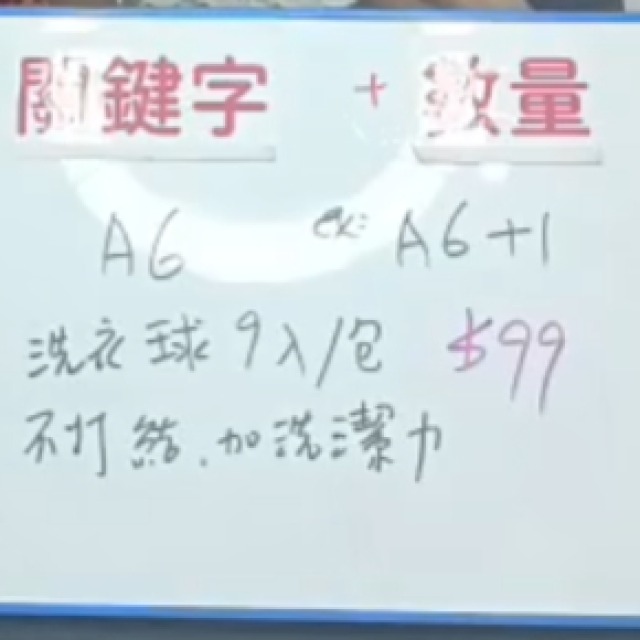 關鍵字 + 數量
A6 ex: A6+1
洗衣球 9入/包 $99
不打結.加洗潔力